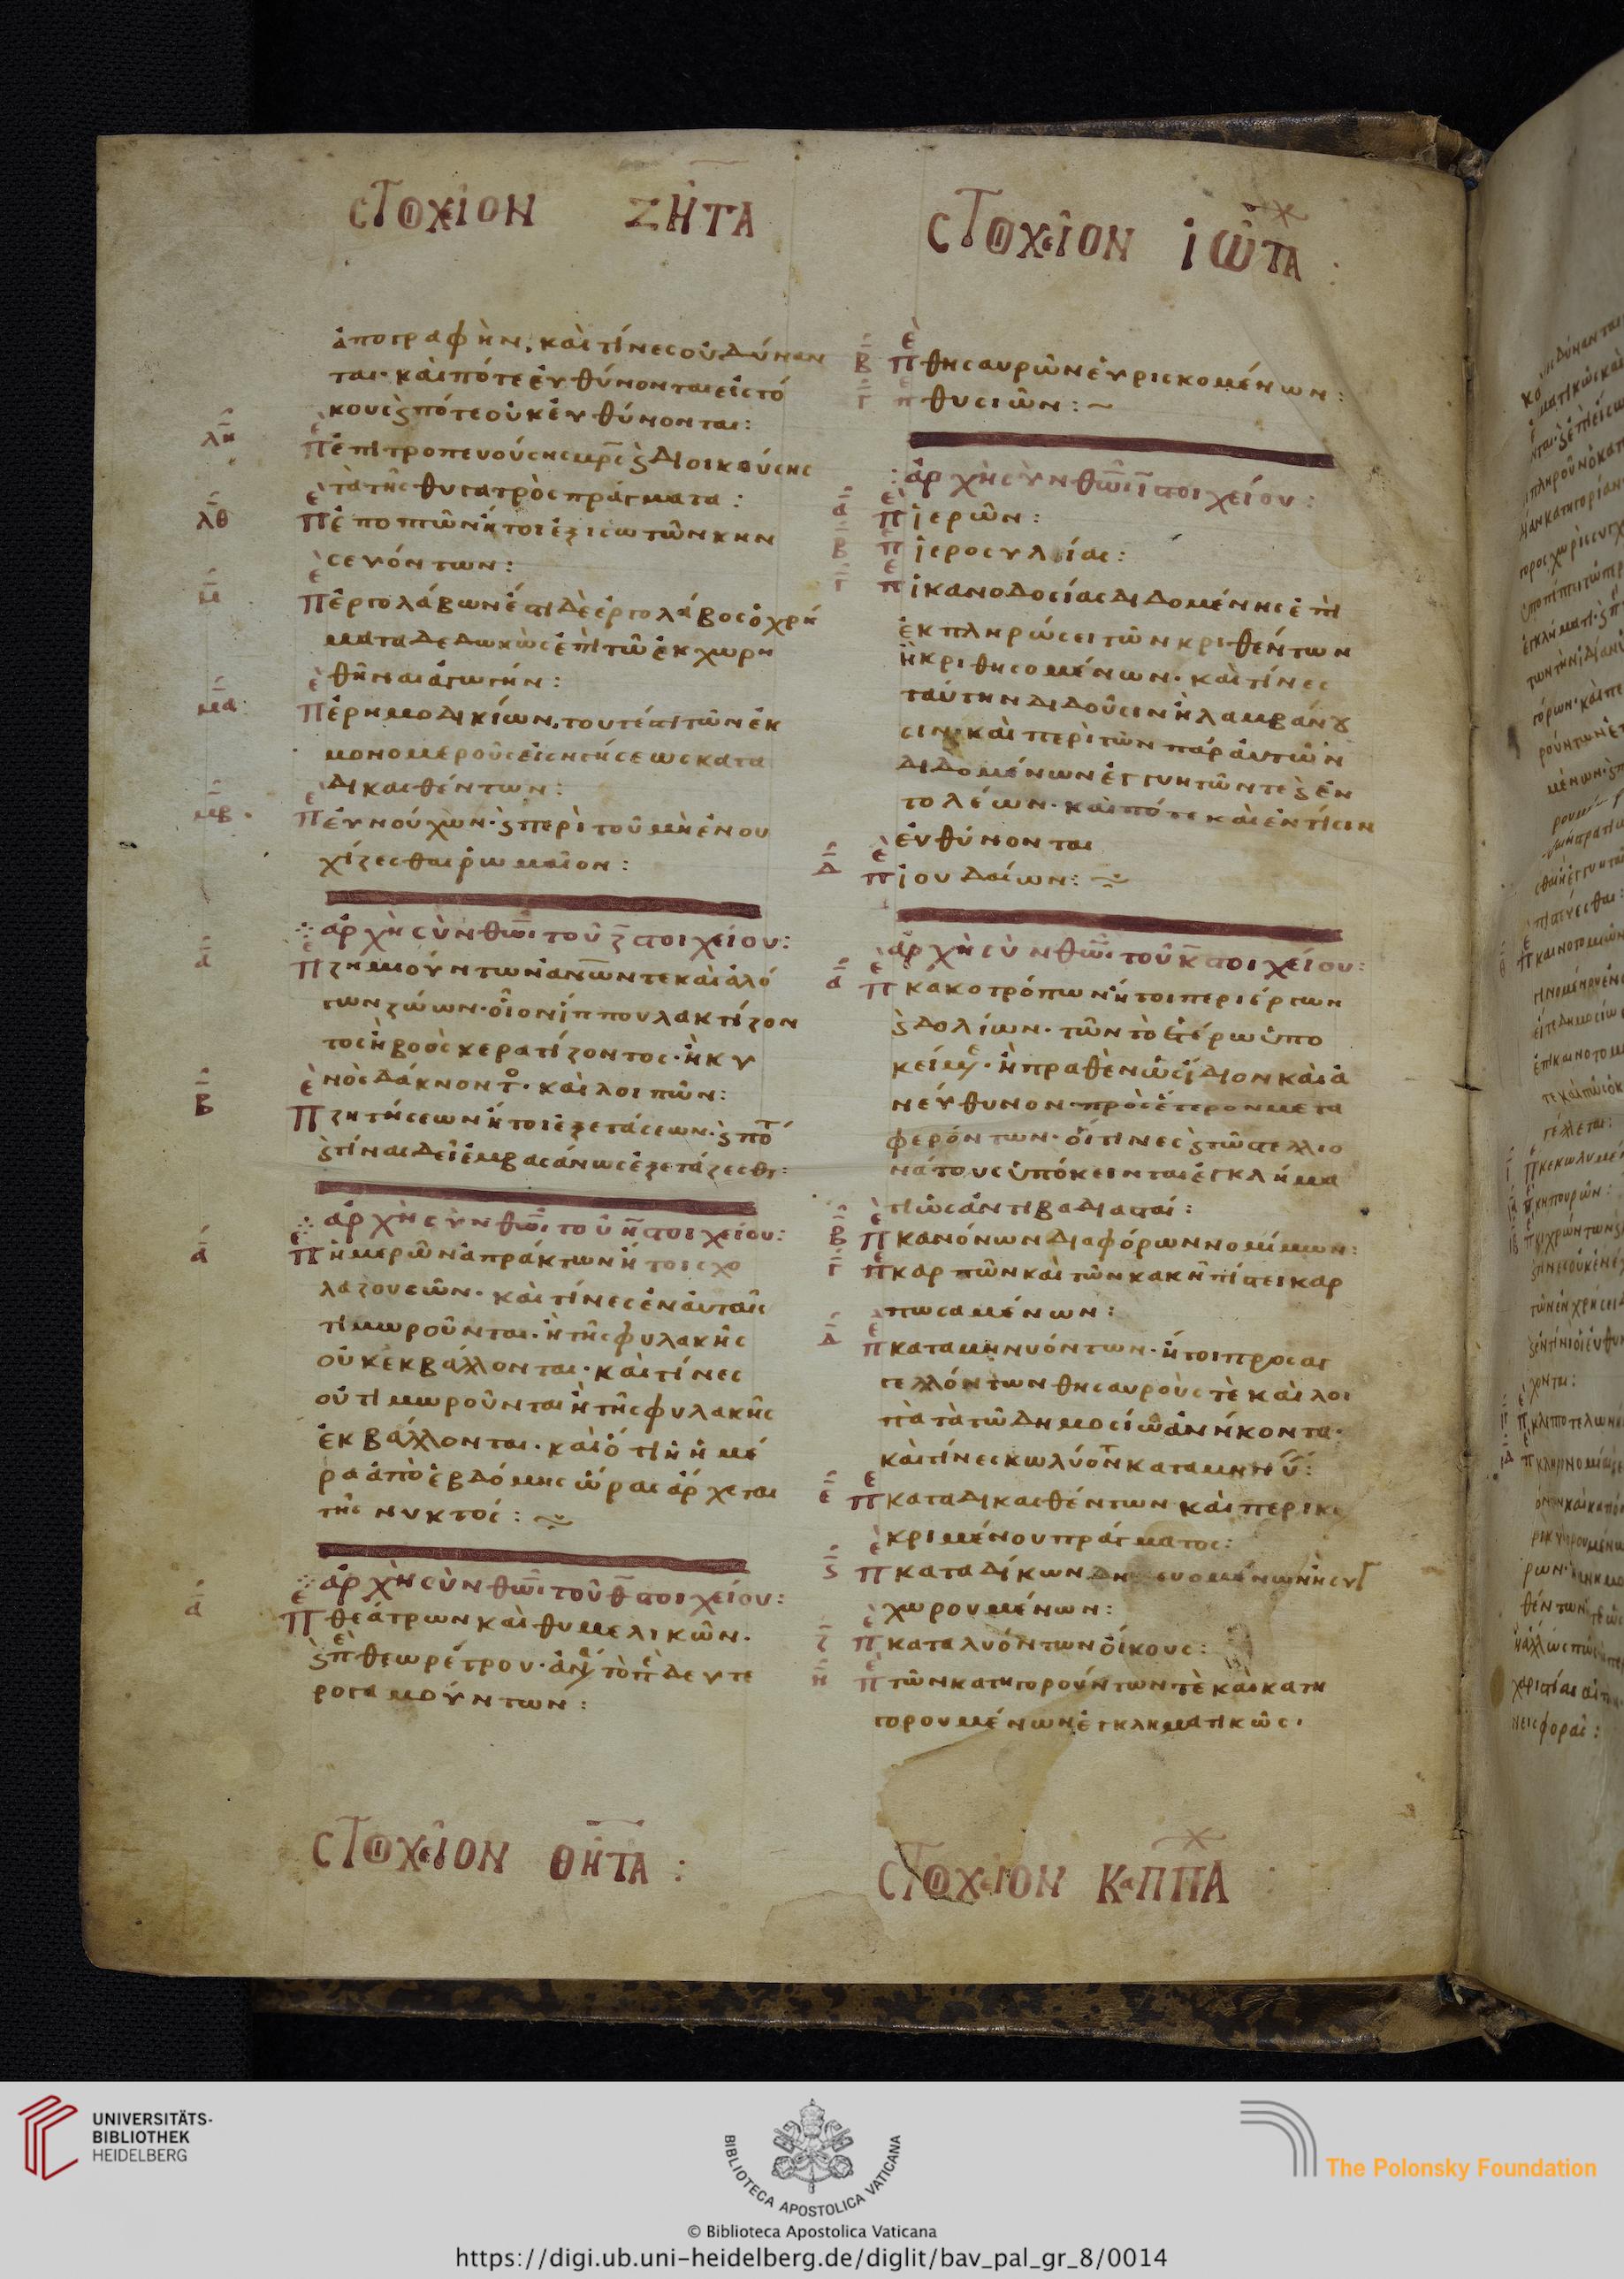 στοιχεῖον ζῆτα
ἀπογραφὴν, καὶ τίνες οὐ δύναν
ται· καὶ πότε εὐθύνονται εἰς τό
κους ϗ πότε οὐκ εὐθύνονται:
λη Πε ἐπιτροπευούσης μρ̅ς ϗ διοικούσης
τὰ τῆς θυγατρὸς πράγματα:
λθ Πε ἐποπτῶν ἤτοι ἐξισωτῶν κην
σευόντων:
μ Πε ἐργολάβων ἔστι δὲ ἐργολάβος ὁ χρή
ματα δεδωκὼς ἐπὶ τῶ ἐκχωρη
θῆναι ἀγωγήν:
μα Πε ἐρημοδικίων, τουτέστι τῶν ἐκ
μονομεροῦς εἰσηγήσεως κατα
δικασθέντων:
μβ Πε εὐνούχων· ϗ περὶ τοῦ μὴ εὐνου
χίζεσθαι ῥωμαῖον:
ἀρχὴ σὺν θω̅ι τοῦ ζ̅ στοιχείου:
α Πε ζημιούντων ανω̅ν τε καὶ ἀλό
γων ζώων· οἷον ἵππου λακτίζον
τος ἢ βοὸς κερατίζοντος· ἢ κυ
νὸς δάκνοντο· καὶ λοιπῶν:
β Πε ζητήσεων ἤτοι ἐξετάσεων· ϗ πότ
ϗ τίνας δεῖ ἐμβασάνως ἐξετάζεσθαι:
ἀρχὴ σὺν θω̅ι τοῦ η̅ στοιχείου:
α Πε ἡμερῶν ἀπράκτων ἤτοι σχο
λαζουσῶν· καὶ τίνες ἐν αὐταῖς
τιμωροῦνται· ἢ τῆς φυλακῆς
οὐκ ἐκβάλλονται· καὶ τίνες
οὐ τιμωροῦνται ἢ τῆς φυλακῆς
ἐκβάλλονται· καὶ ὅτι ἡ ἡμέ
ρα ἀπὸ ἑβδόμης ὥρας ἄρχεται
τῆς νυκτός:
ἀρχὴ σὺν θω̅ι τοῦ θ̅ στοιχείου:
α Πε θεάτρων καὶ θυμελικῶν·
ϗ πε θεωρέτρου· τὸ πε δευτε
ρογαμούντων:
στοιχεῖον θῆτα:
στοιχεῖον ἰῶτα
β Πε θησαυρῶν εὑρισκομένων:
γ πε θυσιῶν:
ἀρχὴ σὺν θω̅ι ι̅ στοιχείου:
α Πε ἱερῶν:
β Πε ἱεροσυλίας:
γ Πε ἱκανοδοσίας διδομένης ἐπὶ
ἐκπληρώσει τῶν κριθέντων
ἢ κριθησομένων· καὶ τίνες
ταύτην διδοῦσιν ἢ λαμβάνου
σιν· καὶ περὶ τῶν παρ' αὐτῶν
διδομένων ἐγγυητῶν τε ϗ ἐν
τολέων· καὶ πότε καὶ ἐν τίσιν
εὐθύνονται
δ Πε ἰουδαίων:
ἀρχὴ σὺν θω̅ι τοῦ κ̅ στοιχείου:
α Πε κακοτρόπων ἤτοι περιέργων
ϗ δολίων· τῶν τὸ ἑτέρω ὑπο
κείμε· ἢ πραθὲν ὡς ἴδιον καὶ ἀ
νεύθυνον πρὸς ἕτερον μετα
φερόντων· οἵτινες ϗ τῶ στελλιο
νάτους ὑπόκεινται ἐγκλήμα
τι ὡς ἀντιβαδισταί:
β Πε κανόνων διαφόρων νομίμων:
γ Πε καρπῶν καὶ τῶν κακῆ πίστει καρ
πωσαμένων:
δ Πε καταμηνυόντων· ἤτοι προσαγ
γελλόντων θησαυροὺς τὲ καὶ λοι
πὰ τὰ τῶ δημοσίω ἀνήκοντα·
καὶ τίνες κωλύοντ καταμηνύ:
ε Πε καταδικασθέντων καὶ περὶ κε
κριμένου πράγματος:
ϛ Πε καταδίκων ἢ συγ
χωρουμένων:
ζ Πε καταλυόντων οἴκους:
η Πε τῶν κατηγορούντων τὲ καὶ κατη
γορουμένων ἐγκληματικῶς·
στοιχεῖον κάππα
UNIVERSITÄTS-
BIBLIOTHEK
HEIDELBERG
BIBLIOTECA APOSTOLICA VATICANA
The Polonsky Foundation
© Biblioteca Apostolica Vaticana
https://digi.ub.uni-heidelberg.de/diglit/bav_pal_gr_8/0014